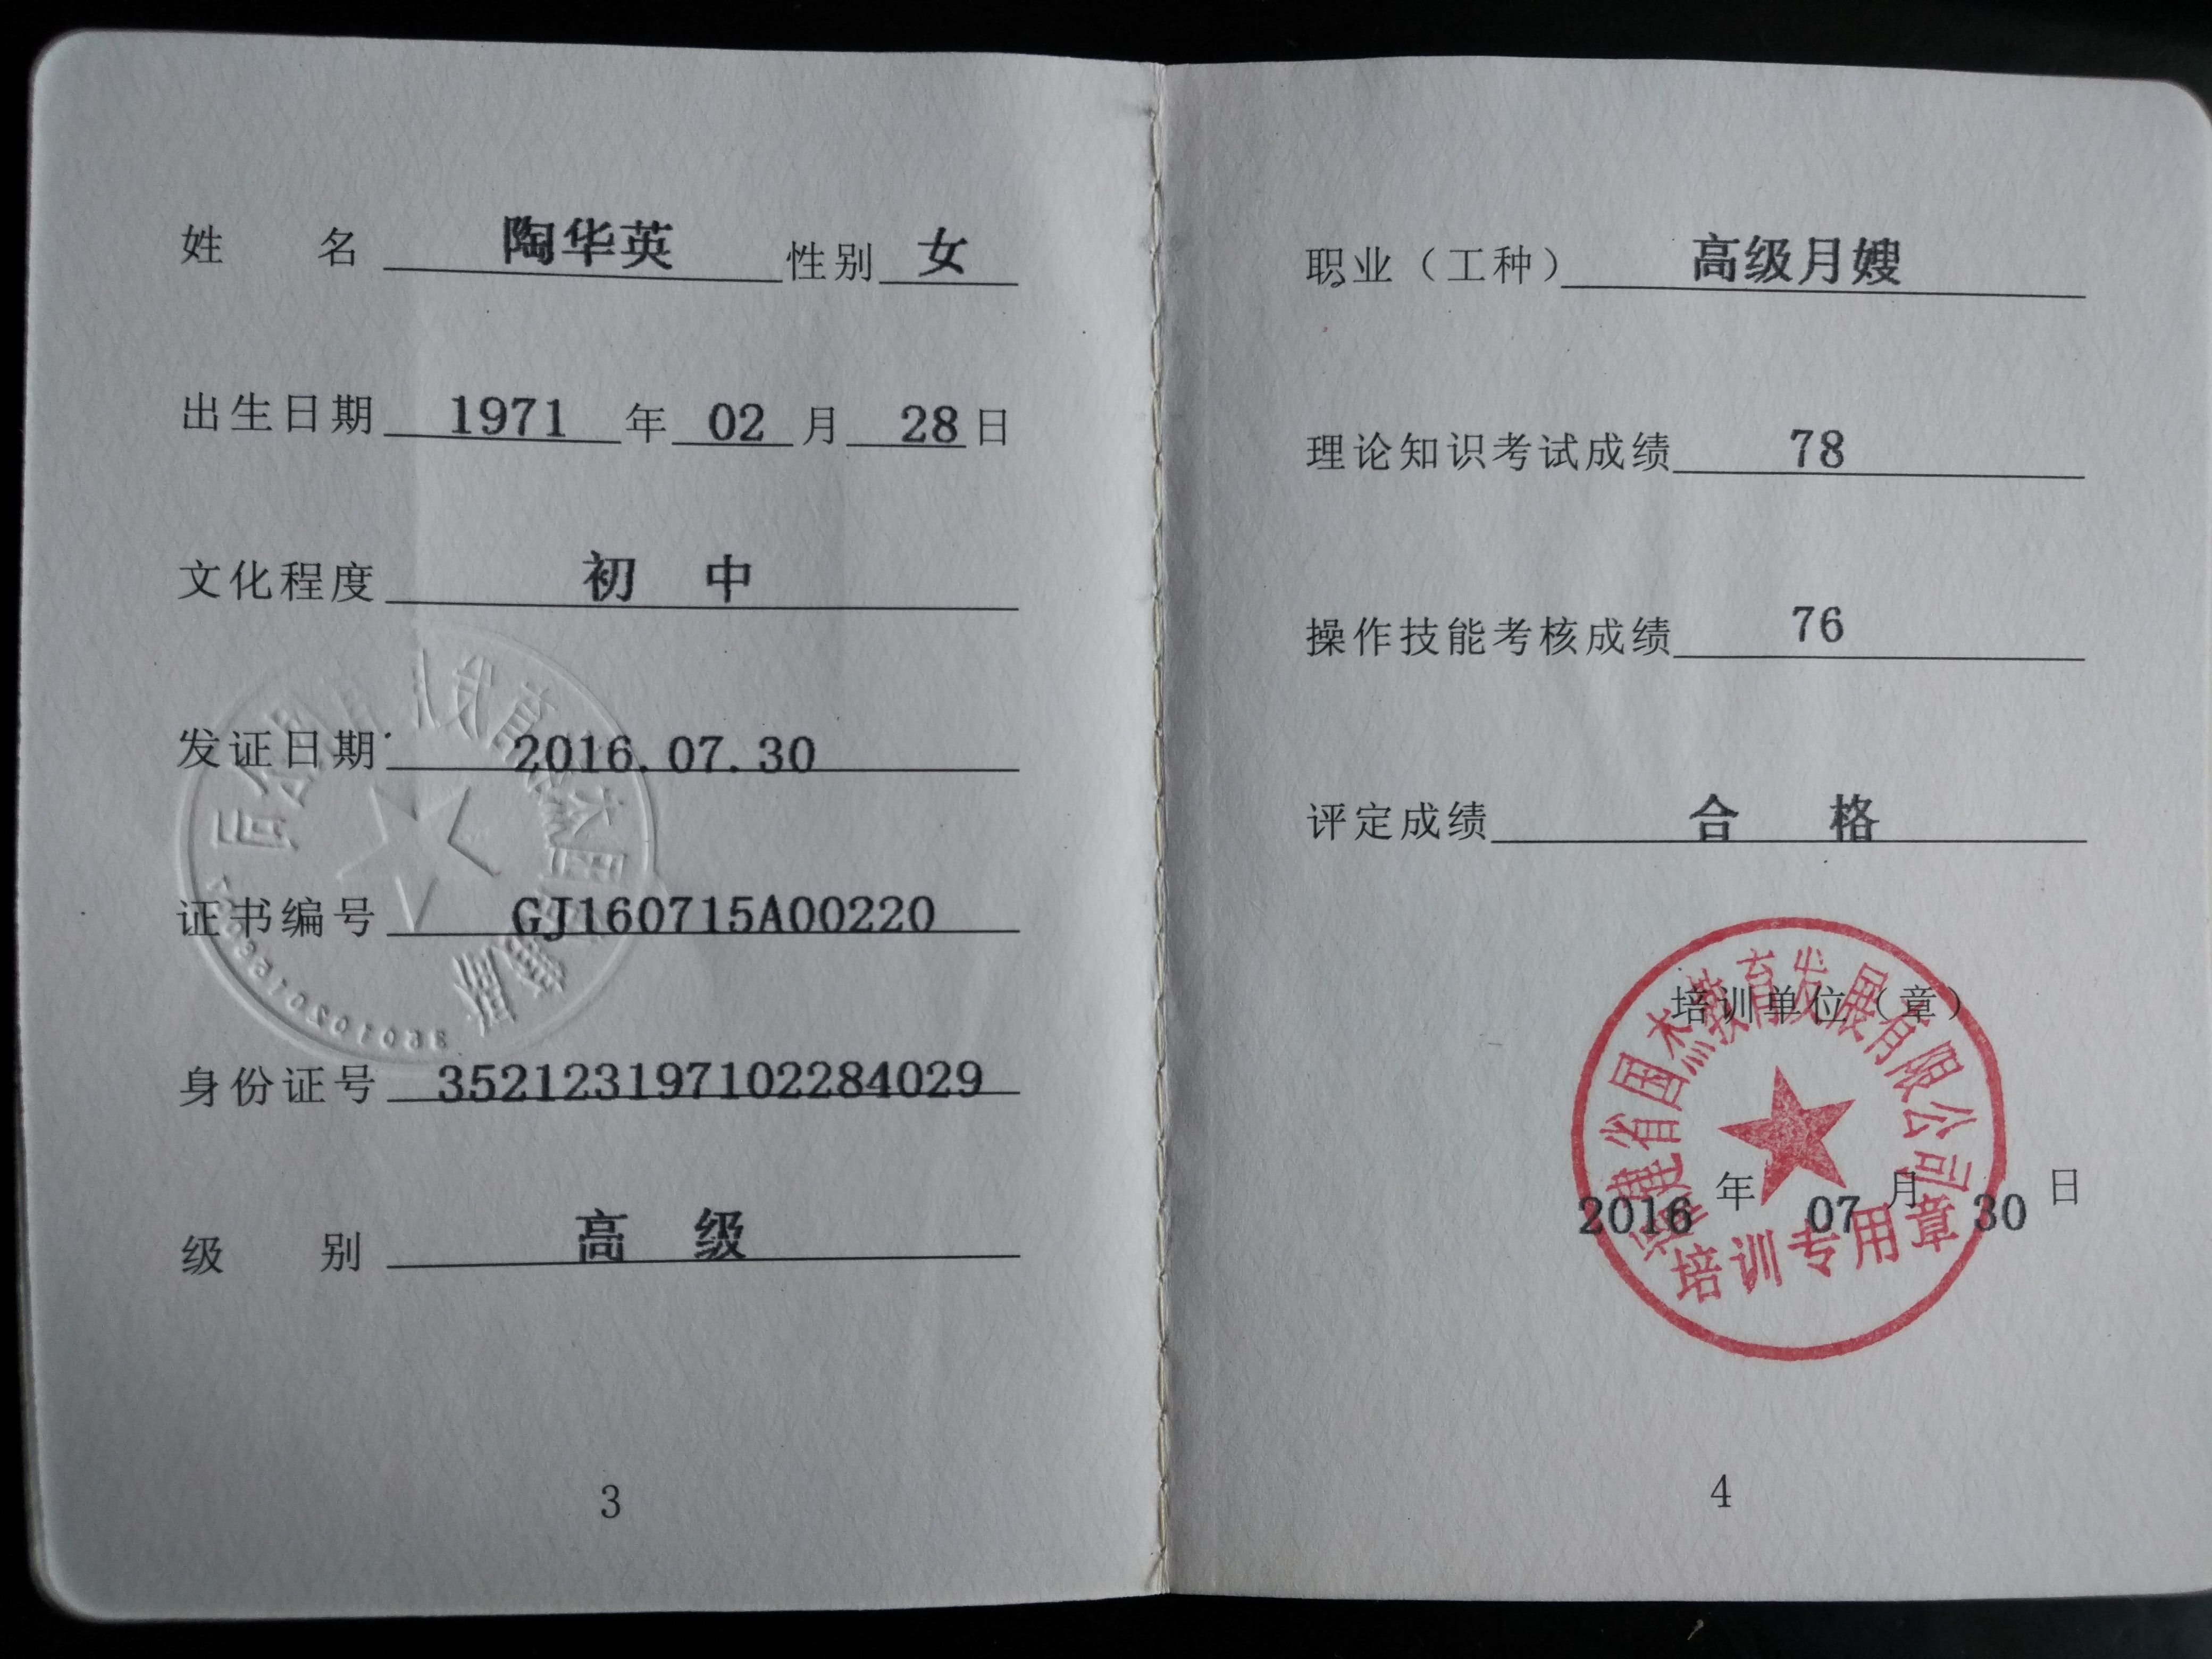 姓 名 陶华英 性别 女
出生日期 1971 年 02 月 28 日
文化程度 初 中
发证日期 2016.07.30
证书编号 GJ160715A00220
身份证号 352123197102284029
级 别 高 级
3
职业（工种） 高级月嫂
理论知识考试成绩 78
操作技能考核成绩 76
评定成绩 合 格
培训单位（章）
福建省国杰教育发展有限公司
2016 年 07 月 30 日
培训专用章
4